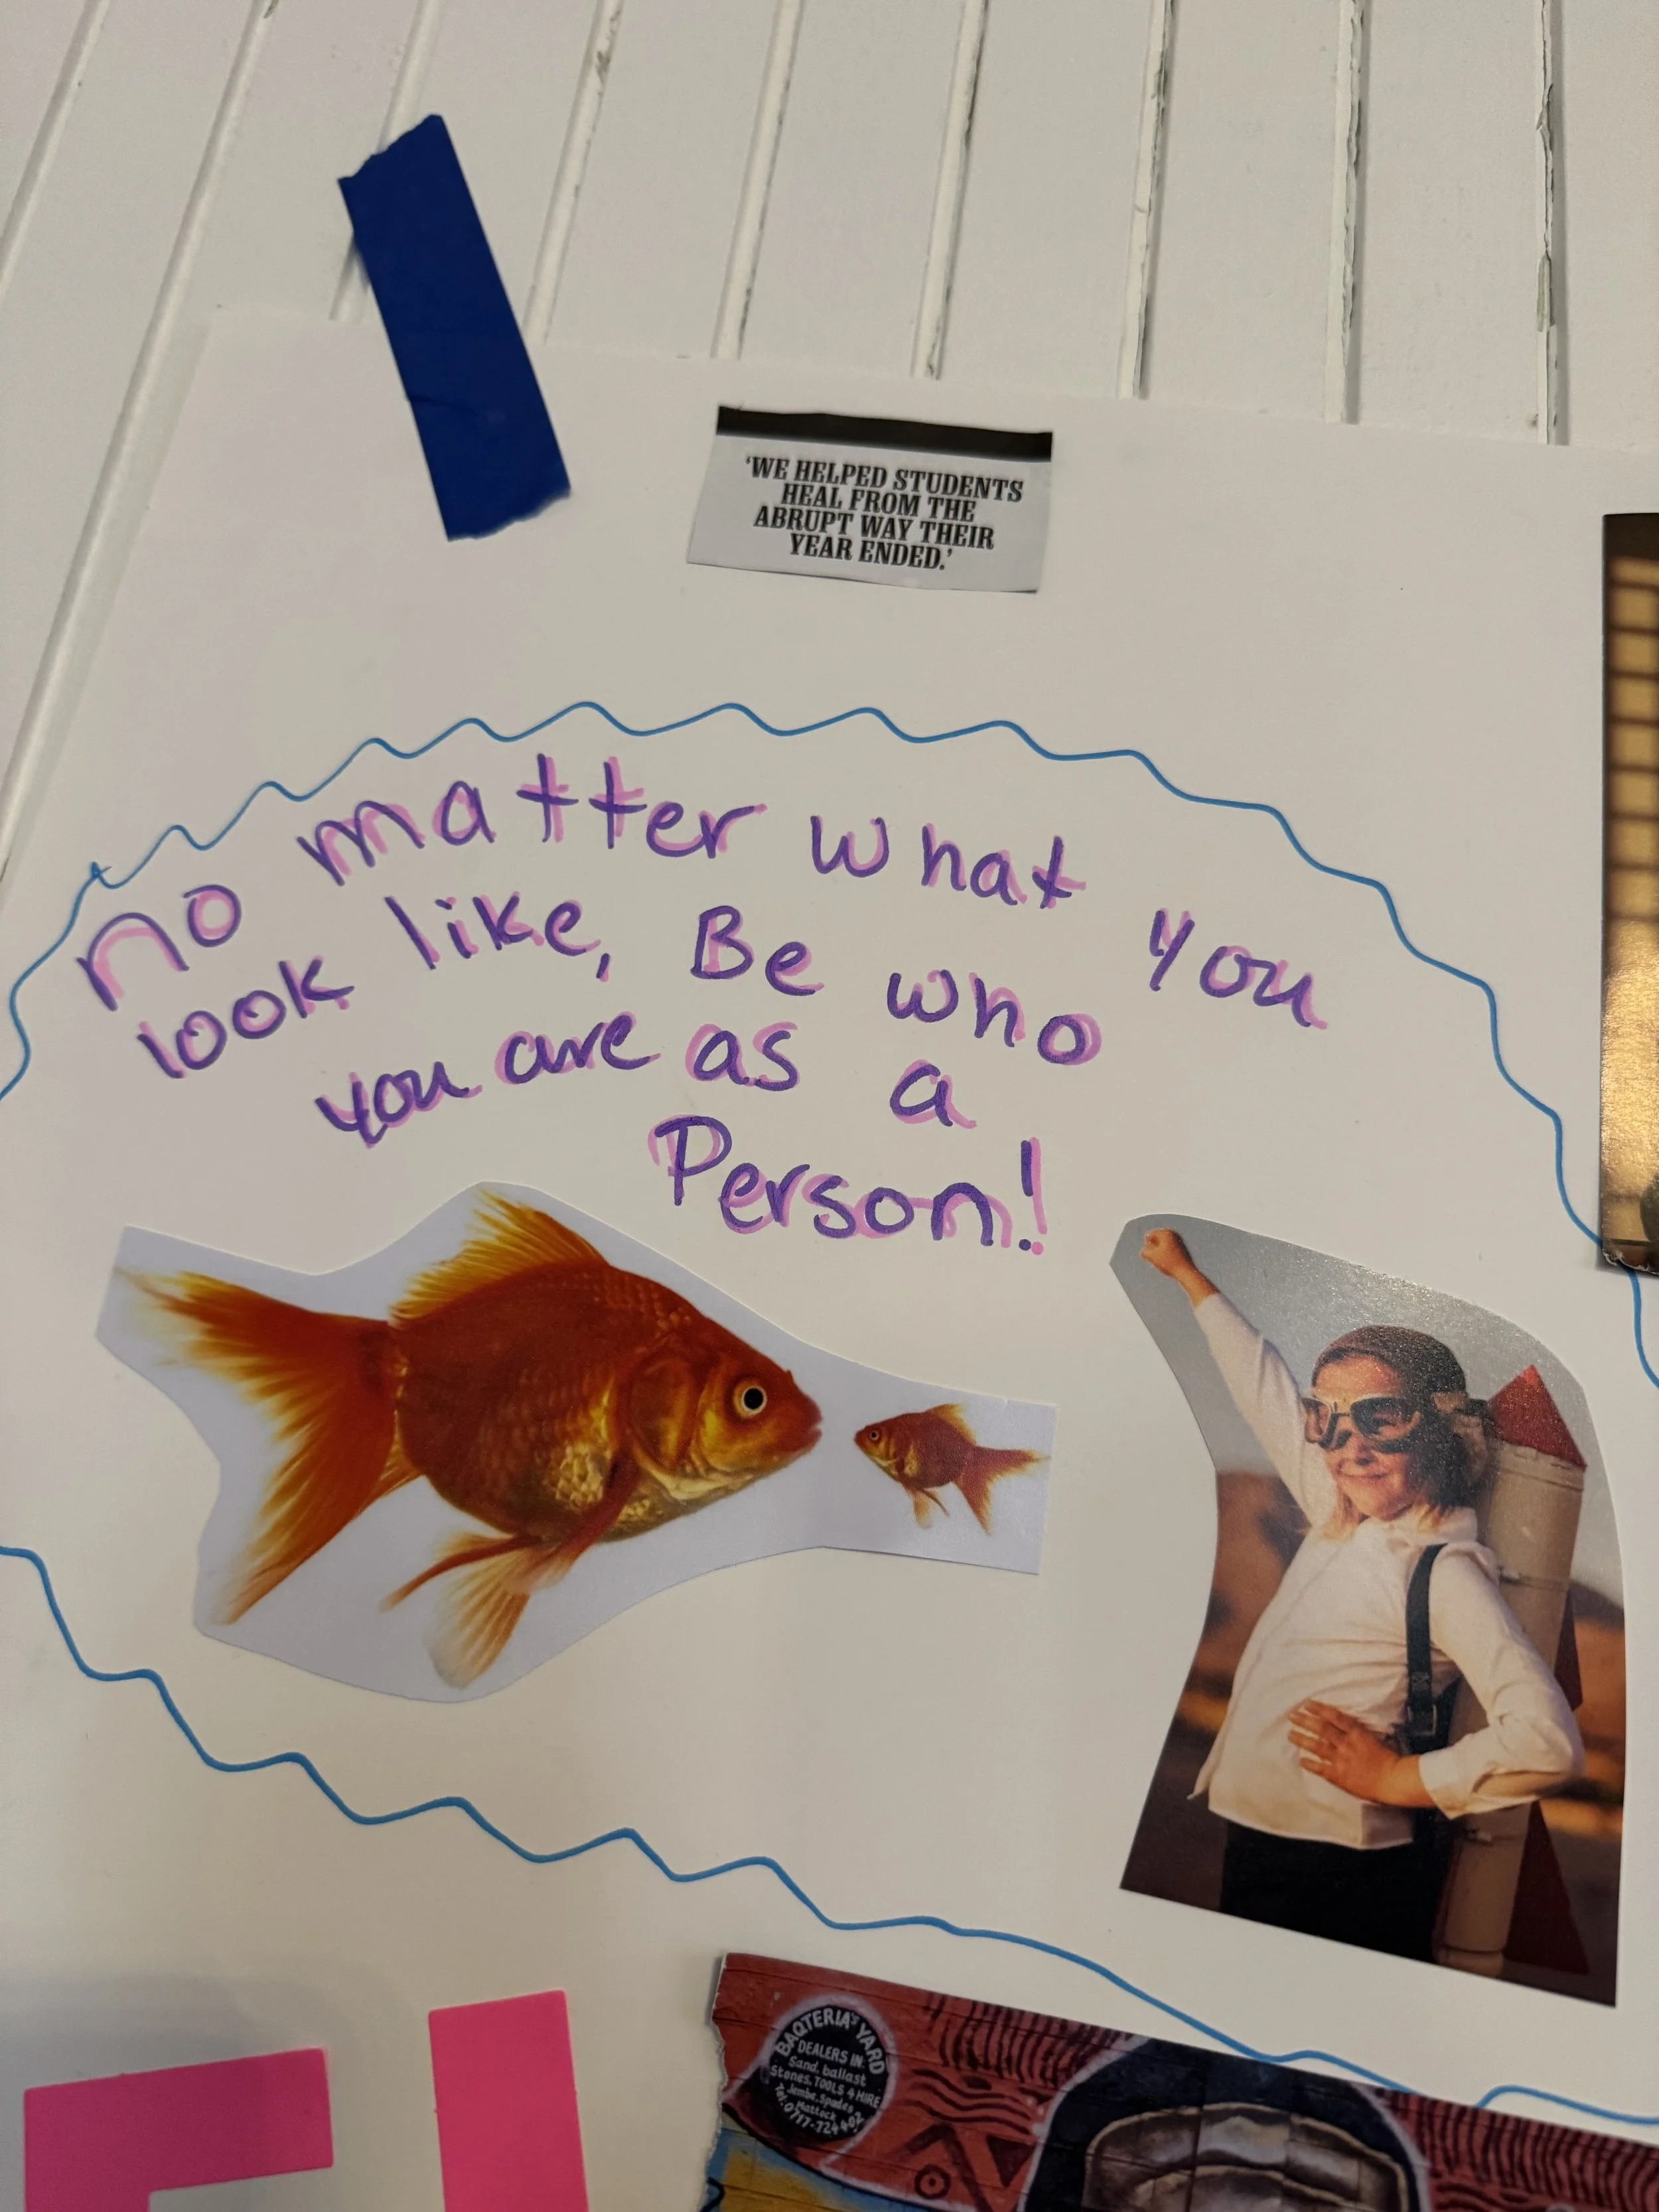 'WE HELPED STUDENTS
HEAL FROM THE
ABRUPT WAY THEIR
YEAR ENDED.'
no matter what you
look like, Be who
you are as a
Person!
BAQTERIA'S YARD
DEALERS IN:
Sand, ballast
Stones, TOOLS 4 HIRE
Jembe, Spades
Mattock